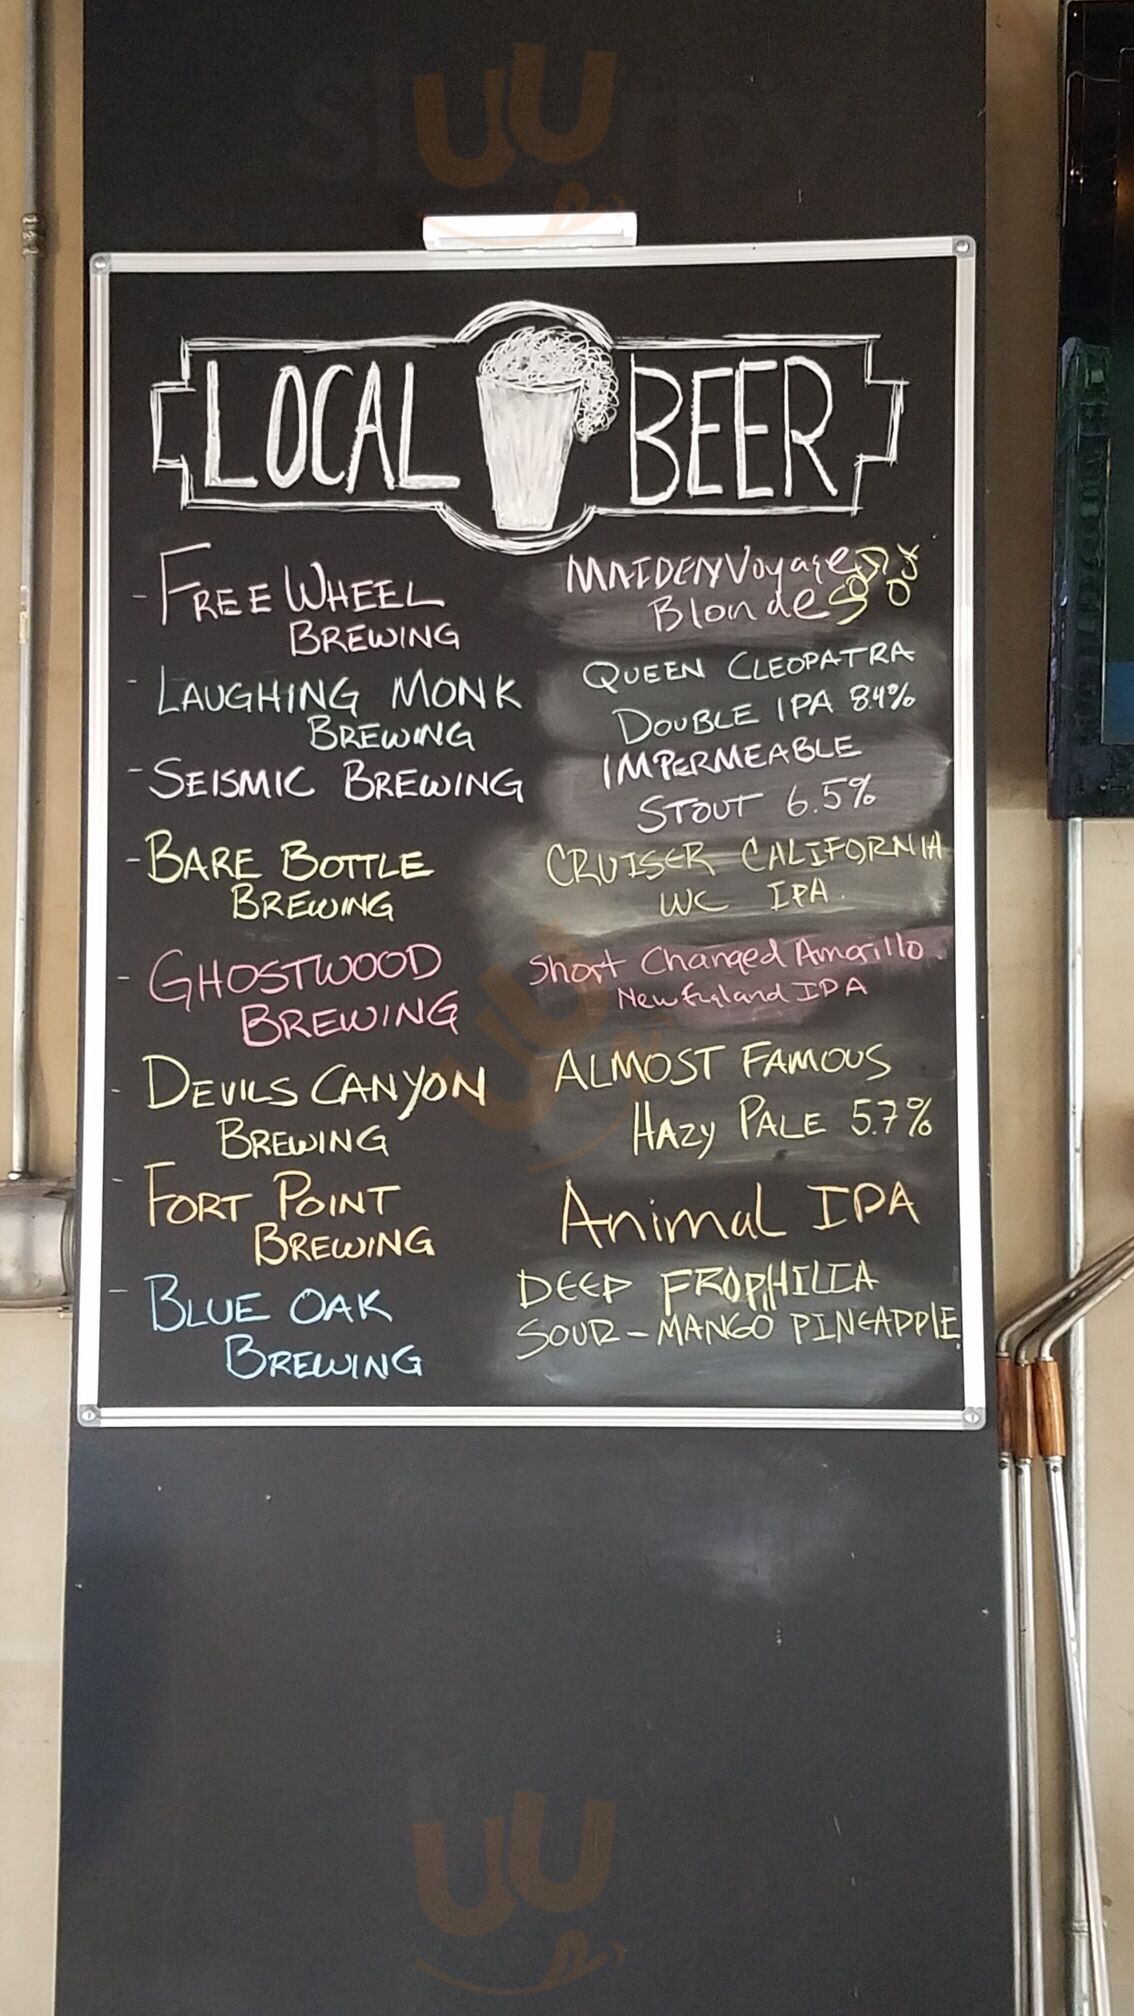 LOCAL BEER
- FREE WHEEL BREWING
MAIDEN Voyage Blonde
- LAUGHING MONK BREWING
QUEEN CLEOPATRA DOUBLE IPA 8.4%
- SEISMIC BREWING
IMPERMEABLE STOUT 6.5%
- BARE BOTTLE BREWING
CRUISER CALIFORNIA WC IPA.
- GHOSTWOOD BREWING
Short Changed Amarillo New England IPA
- DEVILS CANYON BREWING
ALMOST FAMOUS HAZY PALE 5.7%
- FORT POINT BREWING
Animal IPA
- BLUE OAK BREWING
DEEP FROPHILIA SOUR - MANGO PINEAPPLE